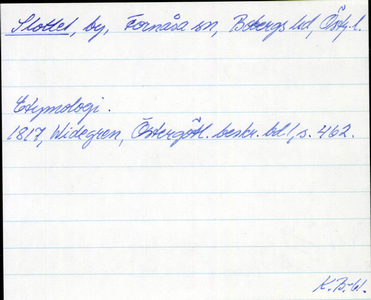 Slottet, by, Fornåsa sn, Bobergs hd, Östg.l.
Etymologi.
1817, Widegren, Östergötl. beskr. bd 1, s. 462.
K.B-W.